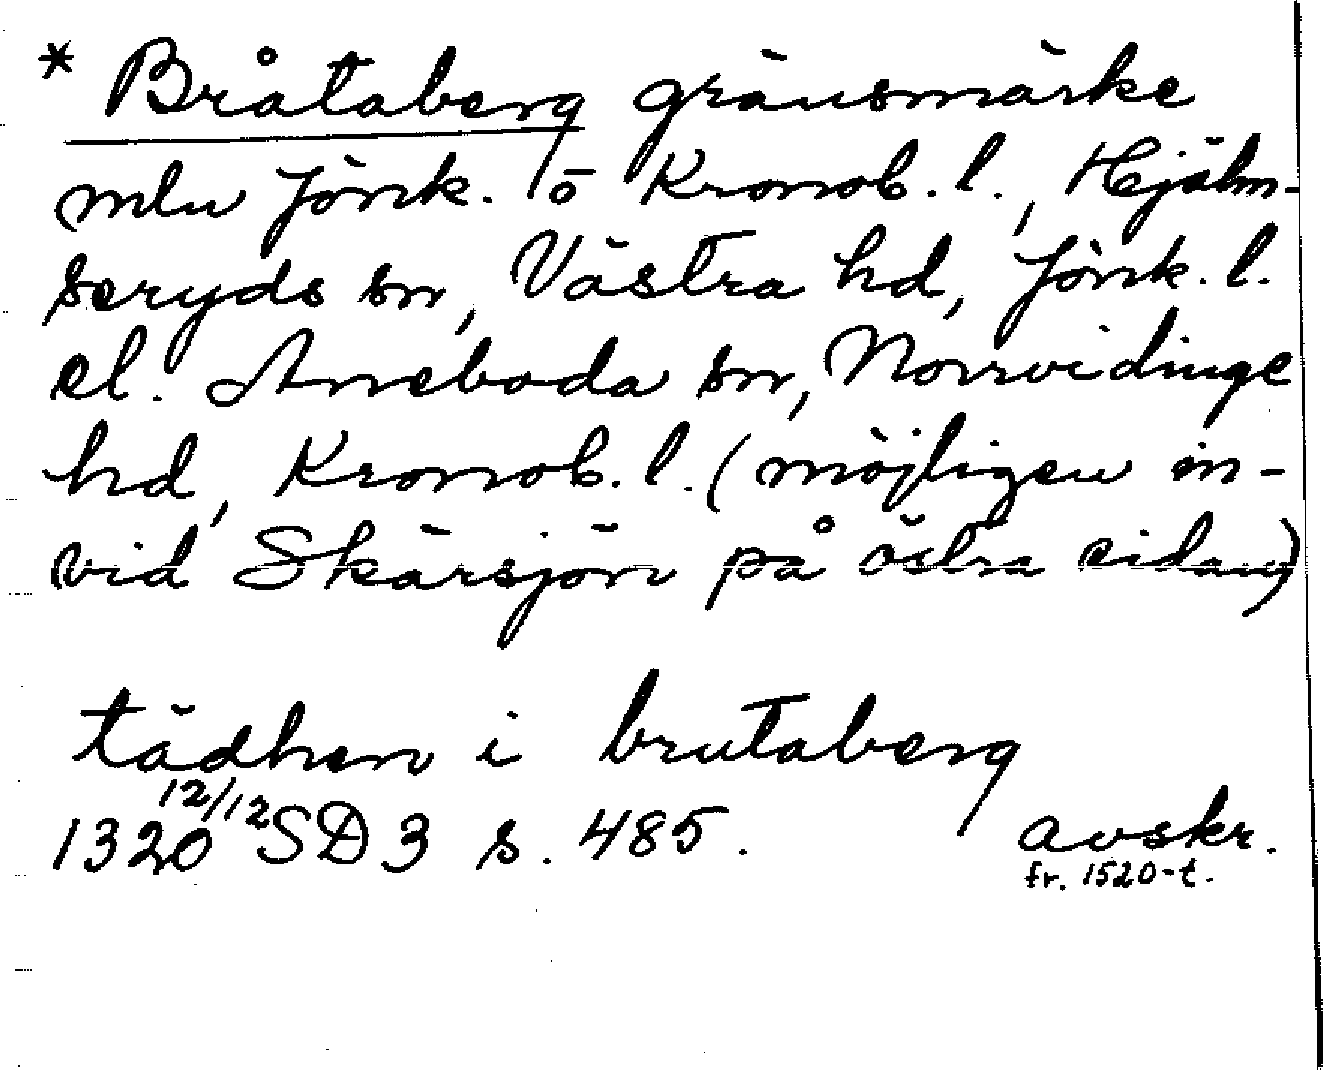 * Bråtaberg gränsmärke
mln Jönk. o Kronob. l., Hjälm-
seryds sn, Västra hd, Jönk. l.
el. Aneboda sn, Norrvidinge
hd, Kronob. l. (möjligen in-
vid Skärsjön på östra sidan)
tädhen i brutaberg
1320 12/12 SD 3 s. 485. avskr.
fr. 1520-t.